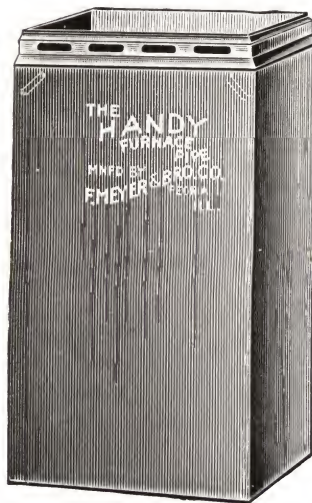 THE
HANDY
FURNACE
PIPE
MNFD BY
F. MEYER & BRO. CO.
PEORIA
ILL.